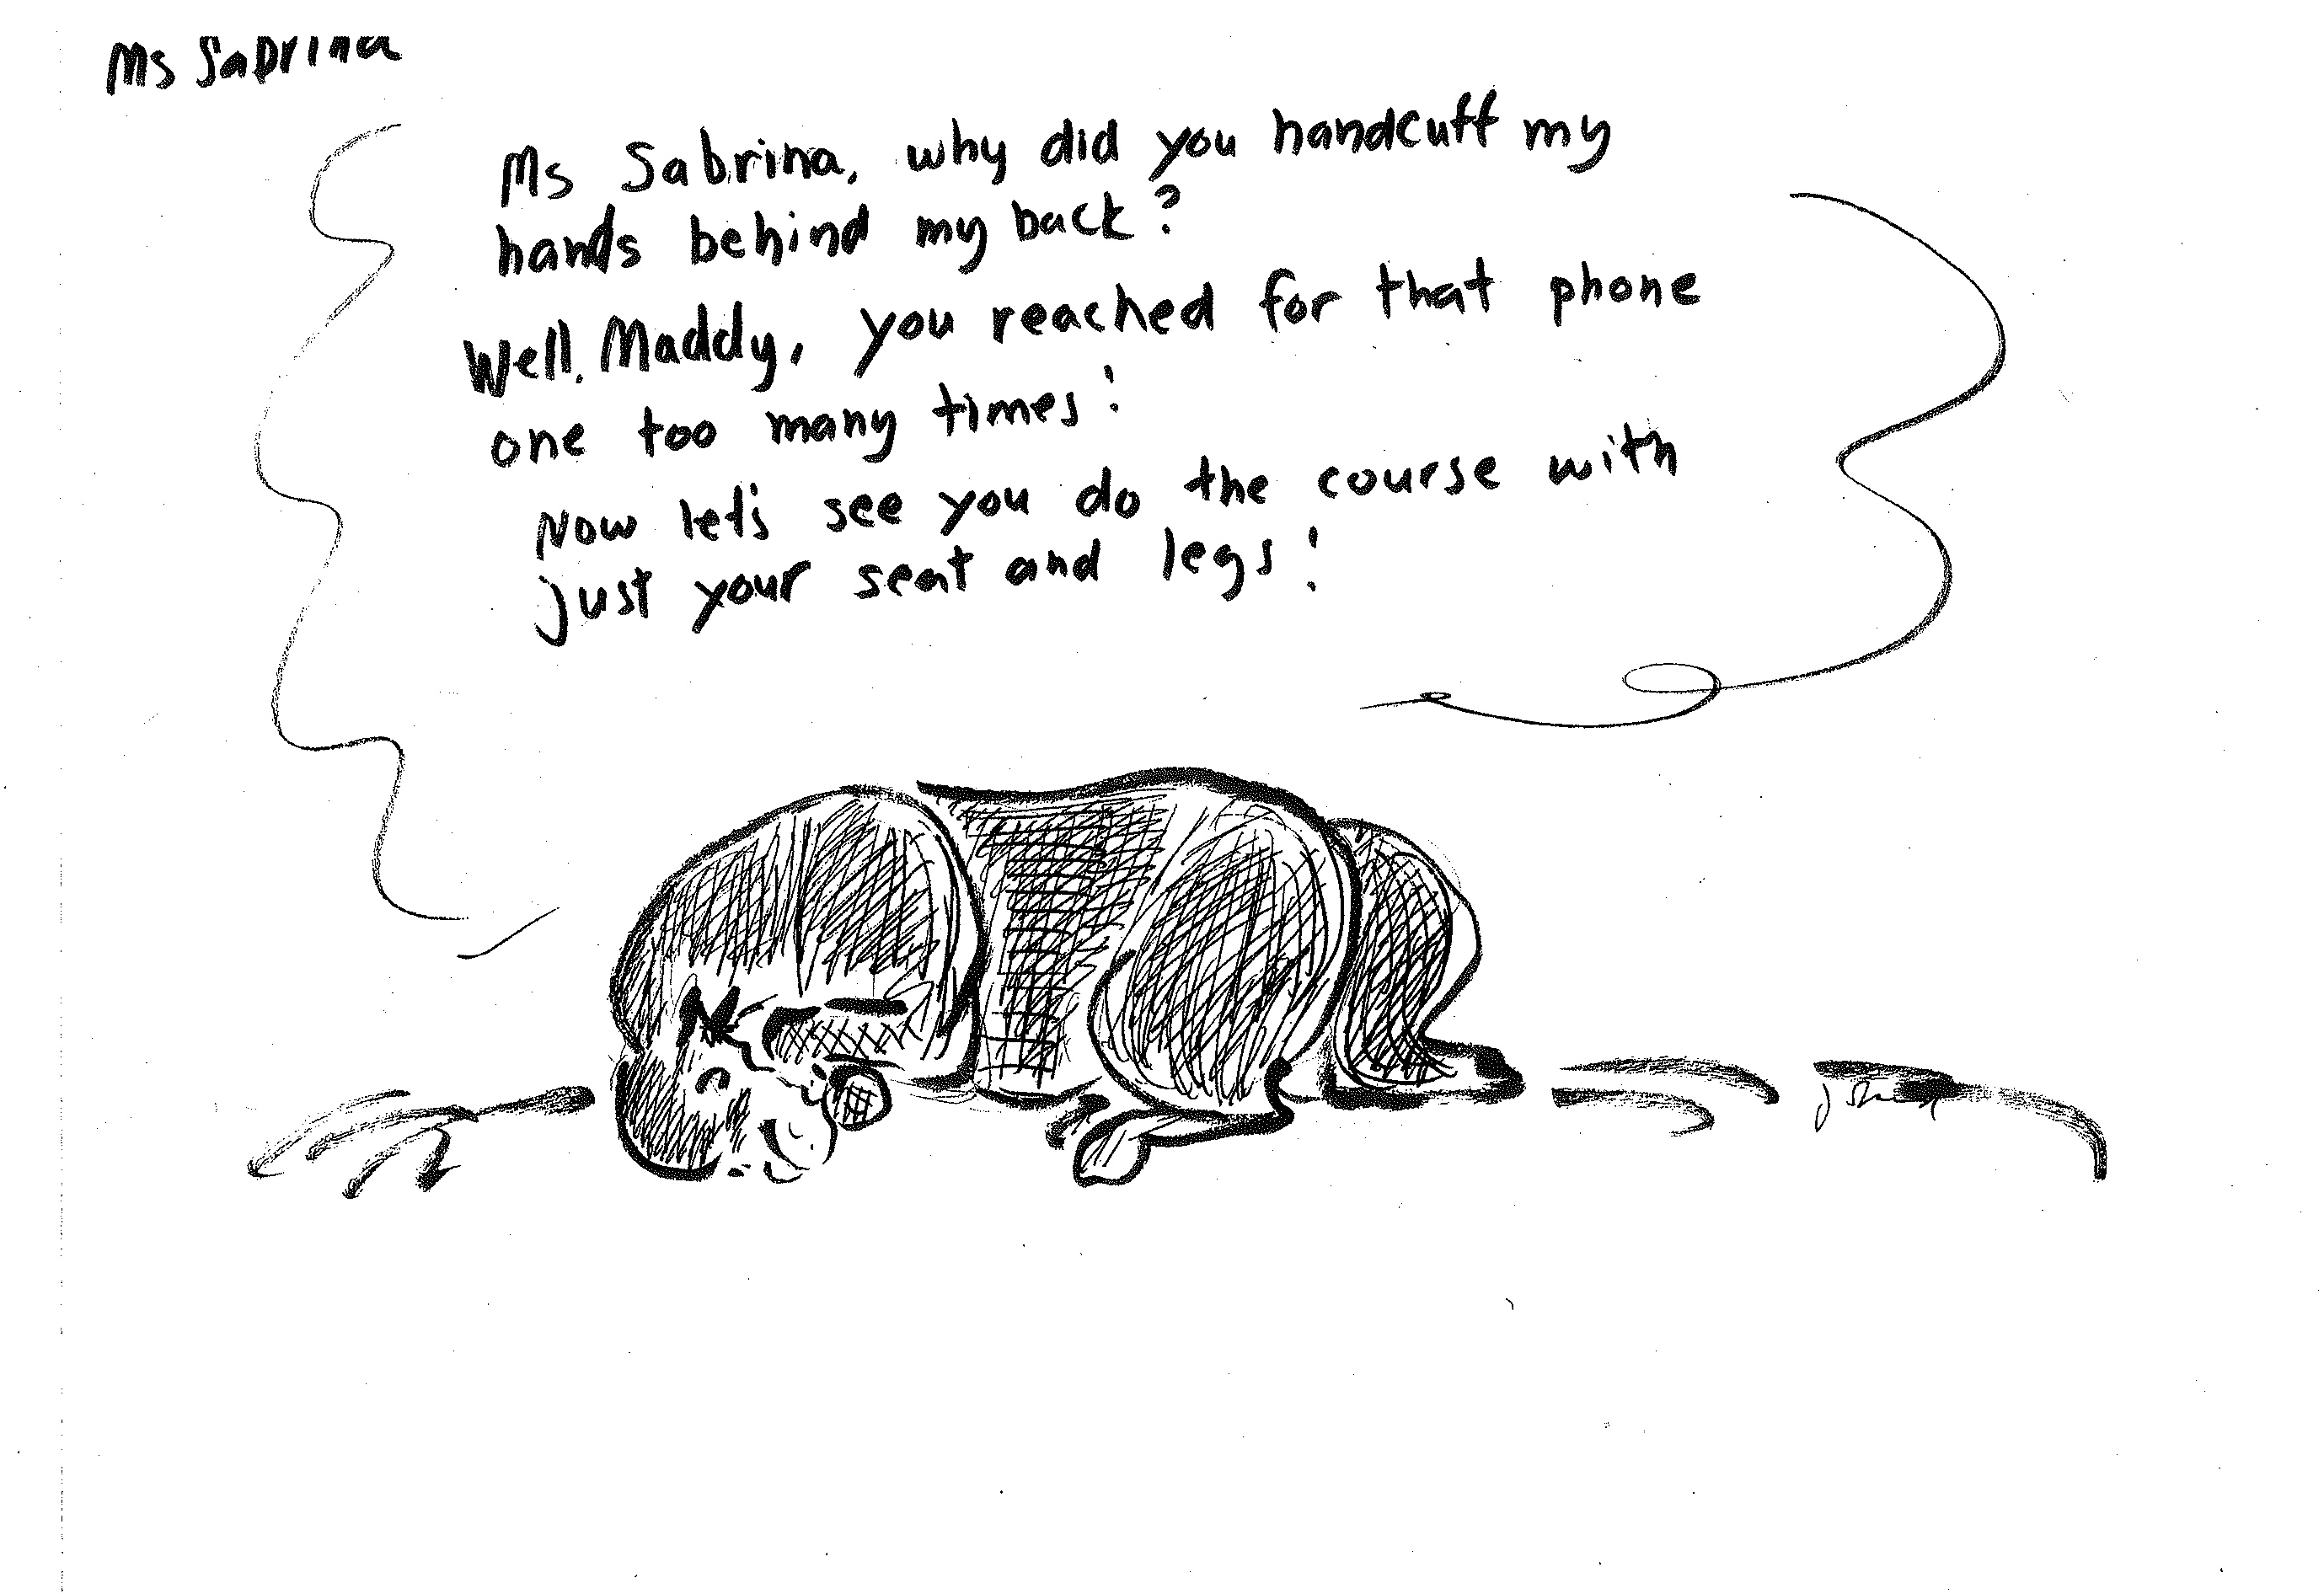 Ms Sabrina
Ms Sabrina, why did you handcuff my
hands behind my back?
Well, Maddy, you reached for that phone
one too many times!
Now let's see you do the course with
just your seat and legs!